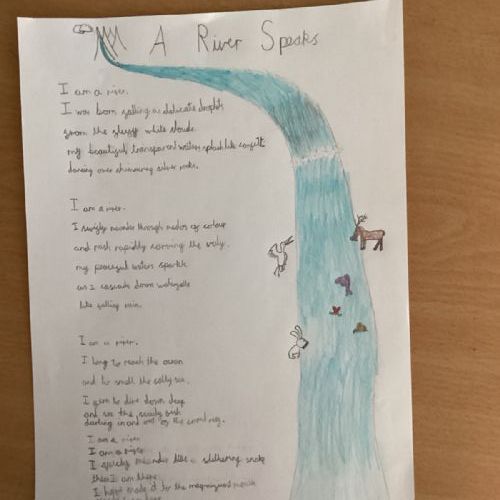 A River Speaks
I am a river.
I was born falling as delicate droplets
from the fleecy white clouds.
my beautiful transparent waters splash like confetti
dancing over shimmering silver rocks.
I am a river.
I swiftly meander through of colour
and rush rapidly the
my powerful waters sparkle
as I cascade down waterfalls
like falling rain.
I am a river.
I long to reach the ocean
and to smell the salty sea.
I yearn to dive down deep
and see the fish
darting in and out of the
I am a river
I am a river
I meander like a slithering snake
then I am there
I have made it to the magnificent